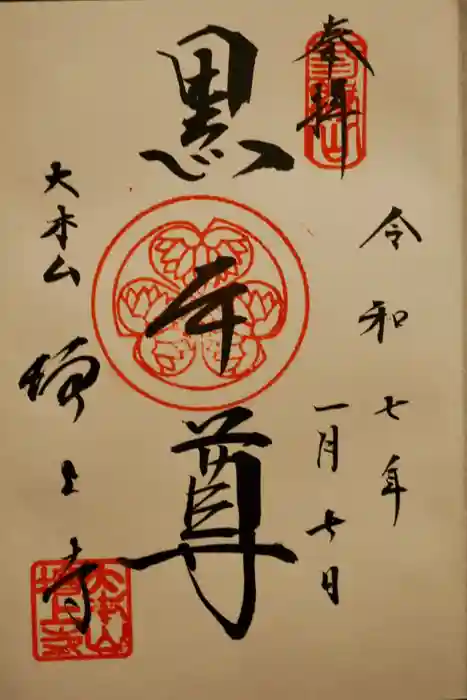 奉拝
令和七年
一月七日
黒本尊
大本山
増上寺
大本山
増上寺